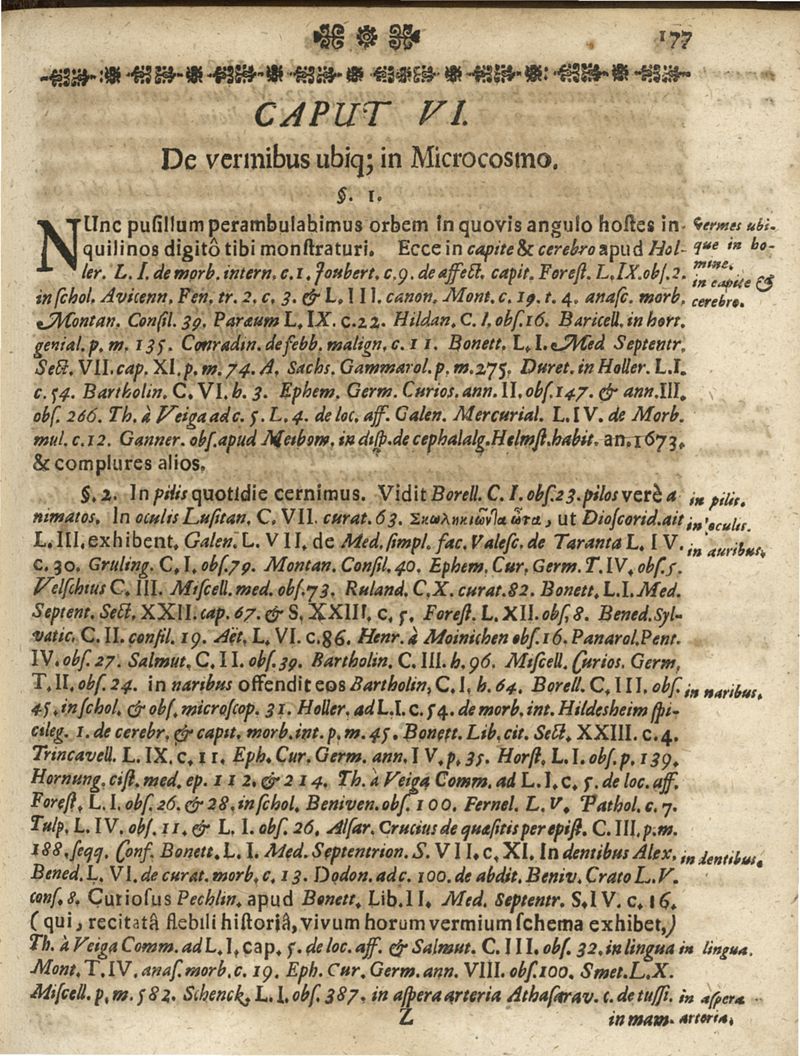 177
CAPUT VI.
De vermibus ubiq; in Microcosmo.
§. 1.
NUnc pusillum perambulabimus orbem in quovis angulo hostes in-
quilinos digitô tibi monstraturi. Ecce in capite & cerebro apud Hol-
ler. L. I. de morb. intern. c. 1. Joubert. c. 9. de affect. capit. Forest. L. IX. obs. 2.
in schol. Avicenn. Fen. tr. 2. c. 3. & L. III. canon. Mont. c. 19. t. 4. anasc. morb.
Montan. Consil. 39. Paræum L. IX. c. 22. Hildan. C. I. obs. 16. Baricell. in hort.
genial. p. m. 135. Conradin. de febb. malign. c. 11. Bonett. L. I. Med Septentr.
Sect. VII. cap. XI. p. m. 74. A. Sachs. Gammarol. p. m. 275. Duret. in Holler. L. I.
c. 54. Bartholin. C. VI. h. 3. Ephem. Germ. Curios. ann. II. obs. 147. & ann. III.
obs. 266. Th. à Veiga ad c. 5. L. 4. de loc. aff. Galen. Mercurial. L. IV. de Morb.
mul. c. 12. Ganner. obs. apud Meibom. in disp. de cephalalg. Helmst. habit. an. 1673.
& complures alios.
Vermes ubi-
que in ho-
mine.
in capite &
cerebro.
§. 2. In pilis quotidie cernimus. Vidit Borell. C. I. obs. 23. pilos verè a
nimatos. In oculis Lusitan. C. VII. curat. 63. Σκωληκιῶντα ὦτα, ut Dioscorid. ait
L. III. exhibent, Galen. L. VII. de Med. simpl. fac. Valesc. de Taranta L. IV.
c. 30. Gruling. C. I. obs. 79. Montan. Consil. 40. Ephem. Cur. Germ. T. IV. obs. 5.
Velschius C. III. Miscell. med. obs. 73. Ruland. C. X. curat. 82. Bonett. L. I. Med.
Septent. Sect. XXII. cap. 67. & S. XXIII. c. 5. Forest. L. XII. obs. 8. Bened. Syl-
vatic. C. II. consil. 19. Aët. L. VI. c. 86. Henr. à Moinichen obs. 16. Panarol. Pent.
IV. obs. 27. Salmut. C. II. obs. 39. Bartholin. C. III. h. 96. Miscell. Curios. Germ.
T. II. obs. 24. in naribus offendit eos Bartholin. C. I. h. 64. Borell. C. III. obs.
45. in schol. & obs. microscop. 31. Holler. ad L. I. c. 54. de morb. int. Hildesheim spi-
cileg. 1. de cerebr. & capit. morb. int. p. m. 45. Bonett. Lib. cit. Sect. XXIII. c. 4.
Trincavell. L. IX. c. 11. Eph. Cur. Germ. ann. IV. p. 35. Horst. L. I. obs. p. 139.
Hornung. cist. med. ep. 112. & 214. Th. à Veiga Comm. ad L. I. c. 5. de loc. aff.
Forest. L. I. obs. 26. & 28. in schol. Beniven. obs. 100. Fernel. L. V. Pathol. c. 7.
Tulp. L. IV. obs. 11. & L. I. obs. 26. Alsar. Crucius de quæsitis per epist. C. III. p. m.
188. seqq. Conf. Bonett. L. I. Med. Septentrion. S. VII. c. XI. In dentibus Alex.
Bened. L. VI. de curat. morb. c. 13. Dodon. ad c. 100. de abdit. Beniv. Crato L. V.
cons. 8. Curiosus Pechlin. apud Bonett. Lib. II. Med. Septentr. S. IV. c. 16.
(qui, recitatâ flebili historiâ, vivum horum vermium schema exhibet,)
Th. à Veiga Comm. ad L. I. cap. 5. de loc. aff. & Salmut. C. III. obs. 32. in lingua
Mont. T. IV. anas. morb. c. 19. Eph. Cur. Germ. ann. VIII. obs. 100. Smet. L. X.
Miscell. p. m. 582. Schenck. L. I. obs. 387. in aspera arteria Athasarav. c. de tussi.
in pilis.
in oculis.
in auribus.
in naribus.
in dentibus.
in lingua.
in aspera
arteria.
Z
in mam-